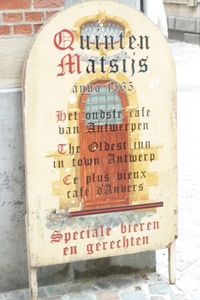 Quinten
Matsijs
anno 1565
Het oudste cafe
van Antwerpen
The Oldest inn
in town Antwerp
Le plus vieux
cafe d'Anvers
Speciale bieren
en gerechten